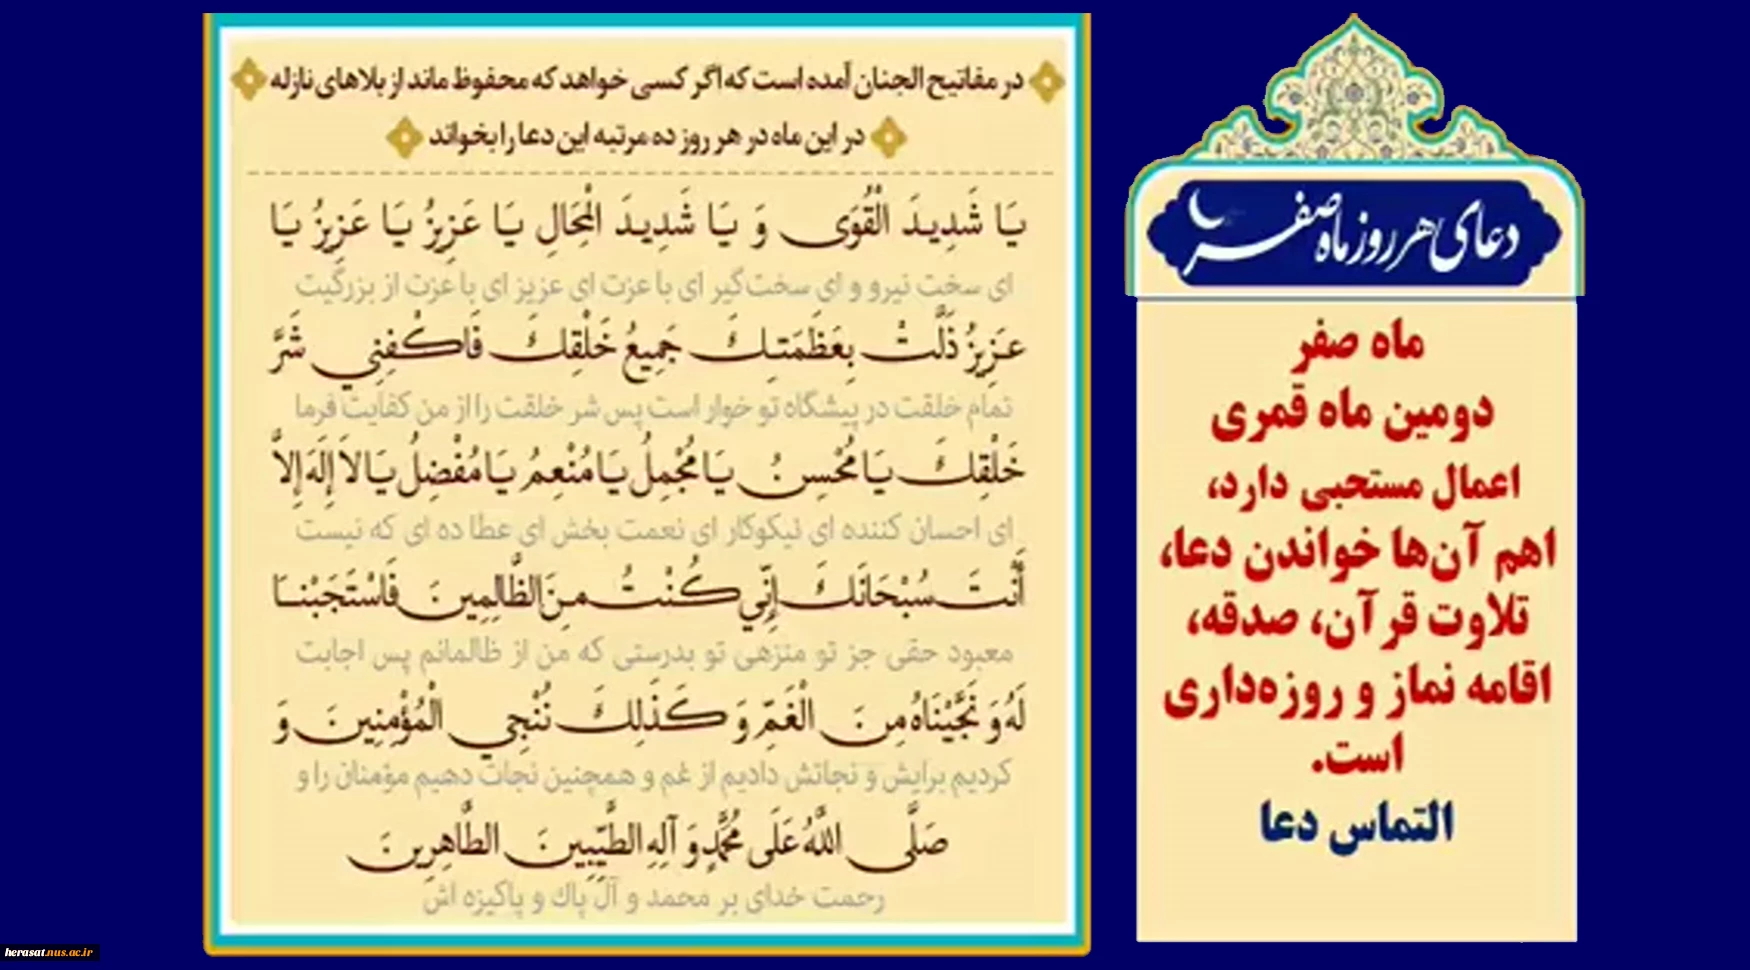 دعای هر روز ماه صفر
ماه صفر
دومین ماه قمری
اعمال مستحبی دارد،
اهم آن‌ها خواندن دعا،
تلاوت قرآن، صدقه،
اقامه نماز و روزه‌داری
است.
التماس دعا
در مفاتیح الجنان آمده است که اگر کسی خواهد که محفوظ ماند از بلاهای نازله
در این ماه در هر روز ده مرتبه این دعا را بخواند
يَا شَدِيدَ الْقُوَى وَ يَا شَدِيدَ الْمِحَالِ يَا عَزِيزُ يَا عَزِيزُ يَا
ای سخت نیرو و ای سخت‌گیر ای با عزت ای عزیز ای با عزت از بزرگیت
عَزِيزُ ذَلَّتْ بِعَظَمَتِكَ جَمِيعُ خَلْقِكَ فَاكْفِنِي شَرَّ
تمام خلقت در پیشگاه تو خوار است پس شر خلقت را از من کفایت فرما
خَلْقِكَ يَا مُحْسِنُ يَا مُجْمِلُ يَا مُنْعِمُ يَا مُفْضِلُ يَا لاَ إِلَهَ إِلاَّ
ای احسان کننده ای نیکوکار ای نعمت بخش ای عطا ده ای که نیست
أَنْتَ سُبْحَانَكَ إِنِّي كُنْتُ مِنَ الظَّالِمِينَ فَاسْتَجَبْنَا
معبود حقی جز تو منزهی تو بدرستی که من از ظالمانم پس اجابت
لَهُ وَ نَجَّيْنَاهُ مِنَ الْغَمِّ وَ كَذَلِكَ نُنْجِي الْمُؤْمِنِينَ وَ
کردیم برایش و نجاتش دادیم از غم و همچنین نجات دهیم مؤمنان را و
صَلَّى اللَّهُ عَلَى مُحَمَّدٍ وَ آلِهِ الطَّيِّبِينَ الطَّاهِرِينَ
رحمت خدای بر محمد و آل پاك و پاکیزه اش
herasat.nus.ac.ir